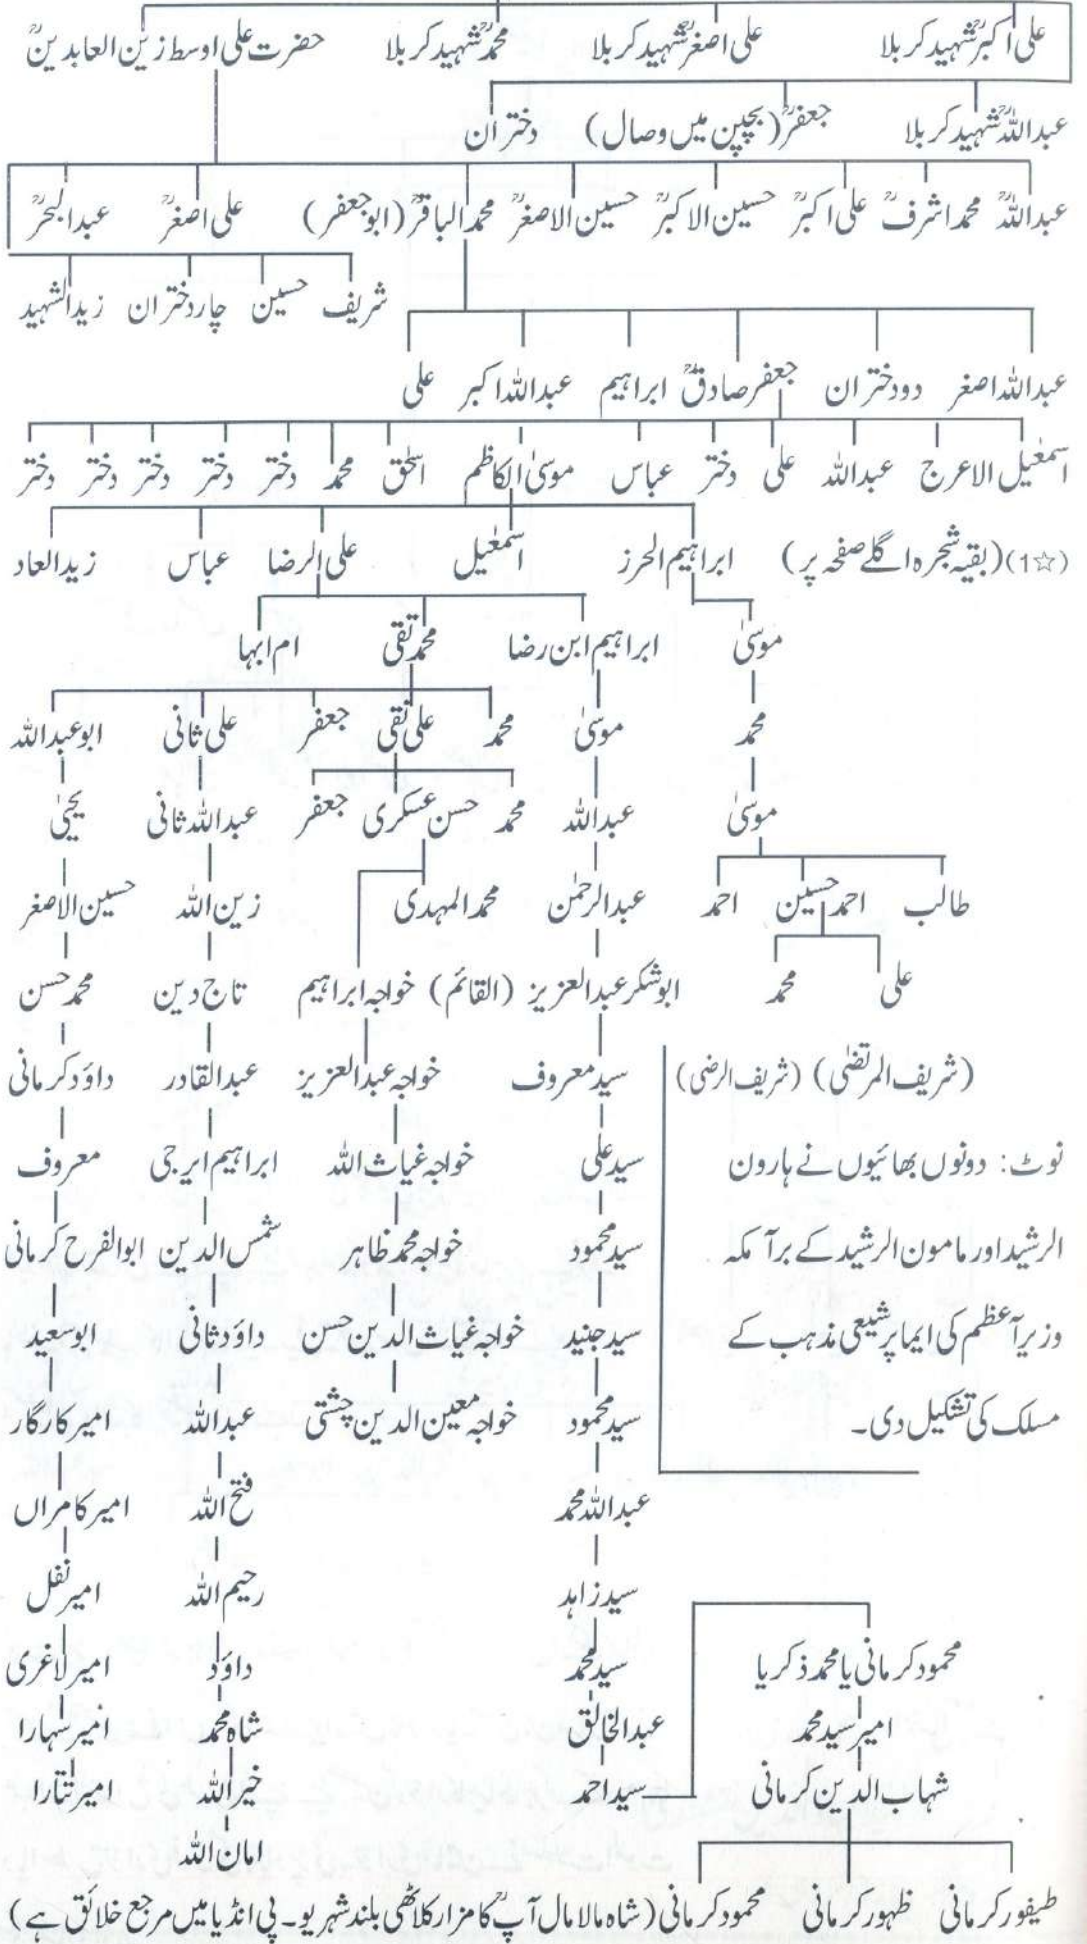 علی اکبرؓ شہید کربلا علی اصغرؓ شہید کربلا محمدؓ شہید کربلا حضرت علی اوسط زین العابدینؓ
عبداللہؓ شہید کربلا جعفرؓ (بچپن میں وصال) دختران
عبداللہؒ محمد اشرفؒ علی اکبرؒ حسین الاکبرؒ حسین الاصغرؒ محمد الباقرؒ (ابو جعفر) علی اصغرؒ عبدالبحرؒ
شریف حسین چار دختران زید الشہید
عبداللہ اصغر دو دختران جعفر صادقؒ ابراہیم عبداللہ اکبر علی
اسمٰعیل الاعرج عبداللہ علی دختر عباس موسیٰ الکاظم اسحٰق محمد دختر دختر دختر دختر دختر
(☆1) (بقیہ شجرہ اگلے صفحہ پر) ابراہیم الحرز اسمٰعیل علی الرضا عباس زید العاد
موسیٰ ابراہیم ابن رضا محمد تقی ام ابہا
محمد موسیٰ محمد علی نقی جعفر علی ثانی ابو عبداللہ
موسیٰ عبداللہ محمد حسن عسکری جعفر عبداللہ ثانی یحییٰ
طالب احمد حسین احمد عبدالرحمٰن محمد المہدی زین اللہ حسین الاصغر
علی محمد ابوشکر عبدالعزیز (القائم) خواجہ ابراہیم تاج دین محمد حسن
(شریف المرتضٰی) (شریف الرضی) سید معروف خواجہ عبدالعزیز عبدالقادر داؤد کرمانی
نوٹ: دونوں بھائیوں نے ہارون سید علی خواجہ غیاث اللہ ابراہیم ایرجی معروف
الرشید اور مامون الرشید کے برآمکہ سید محمود خواجہ محمد ظاہر شمس الدین ابوالفرح کرمانی
وزیرآعظم کی ایما پر شیعی مذہب کے سید جنید خواجہ غیاث الدین حسن داؤد ثانی ابوسعید
مسلک کی تشکیل دی۔ سید محمود خواجہ معین الدین چشتی عبداللہ امیر کارگار
عبداللہ محمد فتح اللہ امیر کامراں
سید زاہد رحیم اللہ امیر نفل
محمود کرمانی یا محمد ذکریا سید محمد داؤد امیر لاغری
امیر سید محمد عبدالخالق شاہ محمد امیر سہارا
شہاب الدین کرمانی سید احمد خیر اللہ امیر تتارا
امان اللہ
طیفور کرمانی ظہور کرمانی محمود کرمانی (شاہ مالا مال آپؒ کا مزار کلاٹھی بلند شہر یو۔پی انڈیا میں مرجع خلائق ہے)